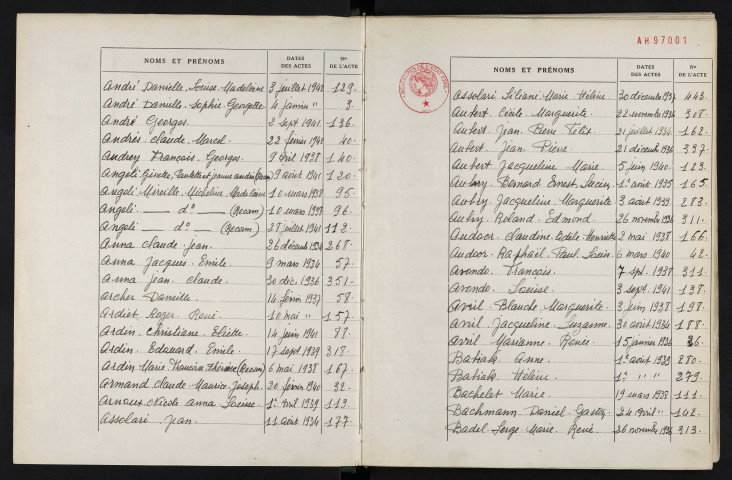 NOMS ET PRÉNOMS DATES DES ACTES Nos DE L'ACTE
André Danielle, Louise Madeleine 3 juillet 1942 129.
André Danielle Sophie Georgette 4 janvier " 3.
André Georges. 2 sept 1941. 136.
Andrès Claude Marcel 22 février 1942 40.
Andrey François Georges. 9 avril 1938 140.
Angeli Ginette, 9 août 1941 120.
Angeli Mireille Micheline Madeleine 10 mars 1938 95.
Angeli — d° — (Recon) 10 mars 1938 96.
Angeli — d° — (Recon) 28 juillet 1941 112.
Anna Claude Jean. 26 décemb 1934 268.
Anna Jacques Emile. 9 mars 1934 57.
Anna Jean Claude. 30 déc. 1936 351.
Archer Danielle. 14 février 1937 58.
Ardist Roger René. 10 mai " 157.
Ardin Christiane Eliette. 14 juin 1941 88.
Ardin Edouard Emile. 17 sept 1939 318.
Ardin Marie Francine Thérèse (Recon) 6 mai 1938 167.
Armand Claude Maurice Joseph. 20 février 1940 32.
Arnoux Nicole Anna Louise 1er avril 1939 113.
Assolari Jean. 11 août 1934 177.
AH97001
NOMS ET PRÉNOMS DATES DES ACTES Nos DE L'ACTE
Assolari Liliane Marie Hélène. 30 décembre 1937 443.
Aubert Cécile Marguerite. 22 novembre 1936 308.
Aubert Jean Pierre Félix. 21 juillet 1934 162.
Aubert Jean Pierre. 21 décemb 1936 337.
Aubert Jacqueline Marie. 5 juin 1940. 123.
Aubry Bernard Ernest Lucien 1er août 1935 165.
Aubry Jacqueline Marguerite 3 août 1939. 283.
Aubry Roland Edmond. 26 novembre 1936 311.
Audoer Claudine Odile Henriette 2 mai 1938 166.
Audoer Raphaël Paul Louis. 6 mars 1940 42.
Avondo François. 7 sept. 1938 311.
Avondo Louise. 3 sept. 1941 138.
Avril Claude Marguerite. 3 juin 1938 198.
Avril Jacqueline Suzanne. 30 août 1934 188.
Avril Marianne Renée. 15 janvier 1936 36.
Batiak Anne. 1er août 1939 280.
Batiak Hélène. 1er " " 279.
Bachelet Marie. 19 mars 1938 111.
Bachmann Daniel Gaston 24 avril " 142.
Badel Serge Marie René. 26 novembre 1936 313.